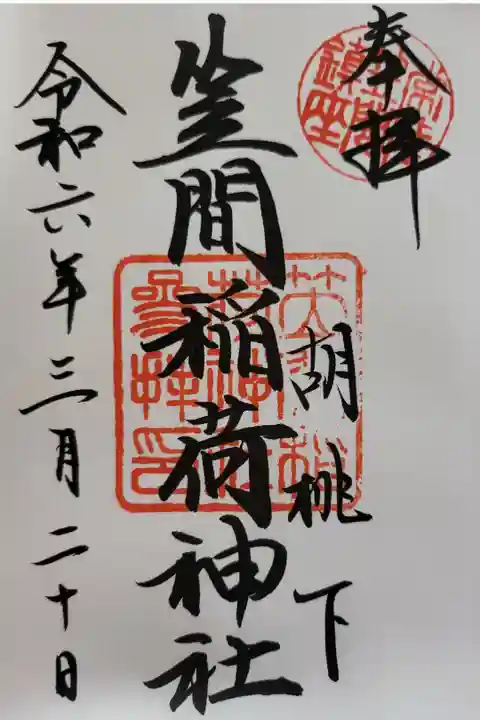 奉拝
胡桃下
笠間稲荷神社
令和六年三月二十日